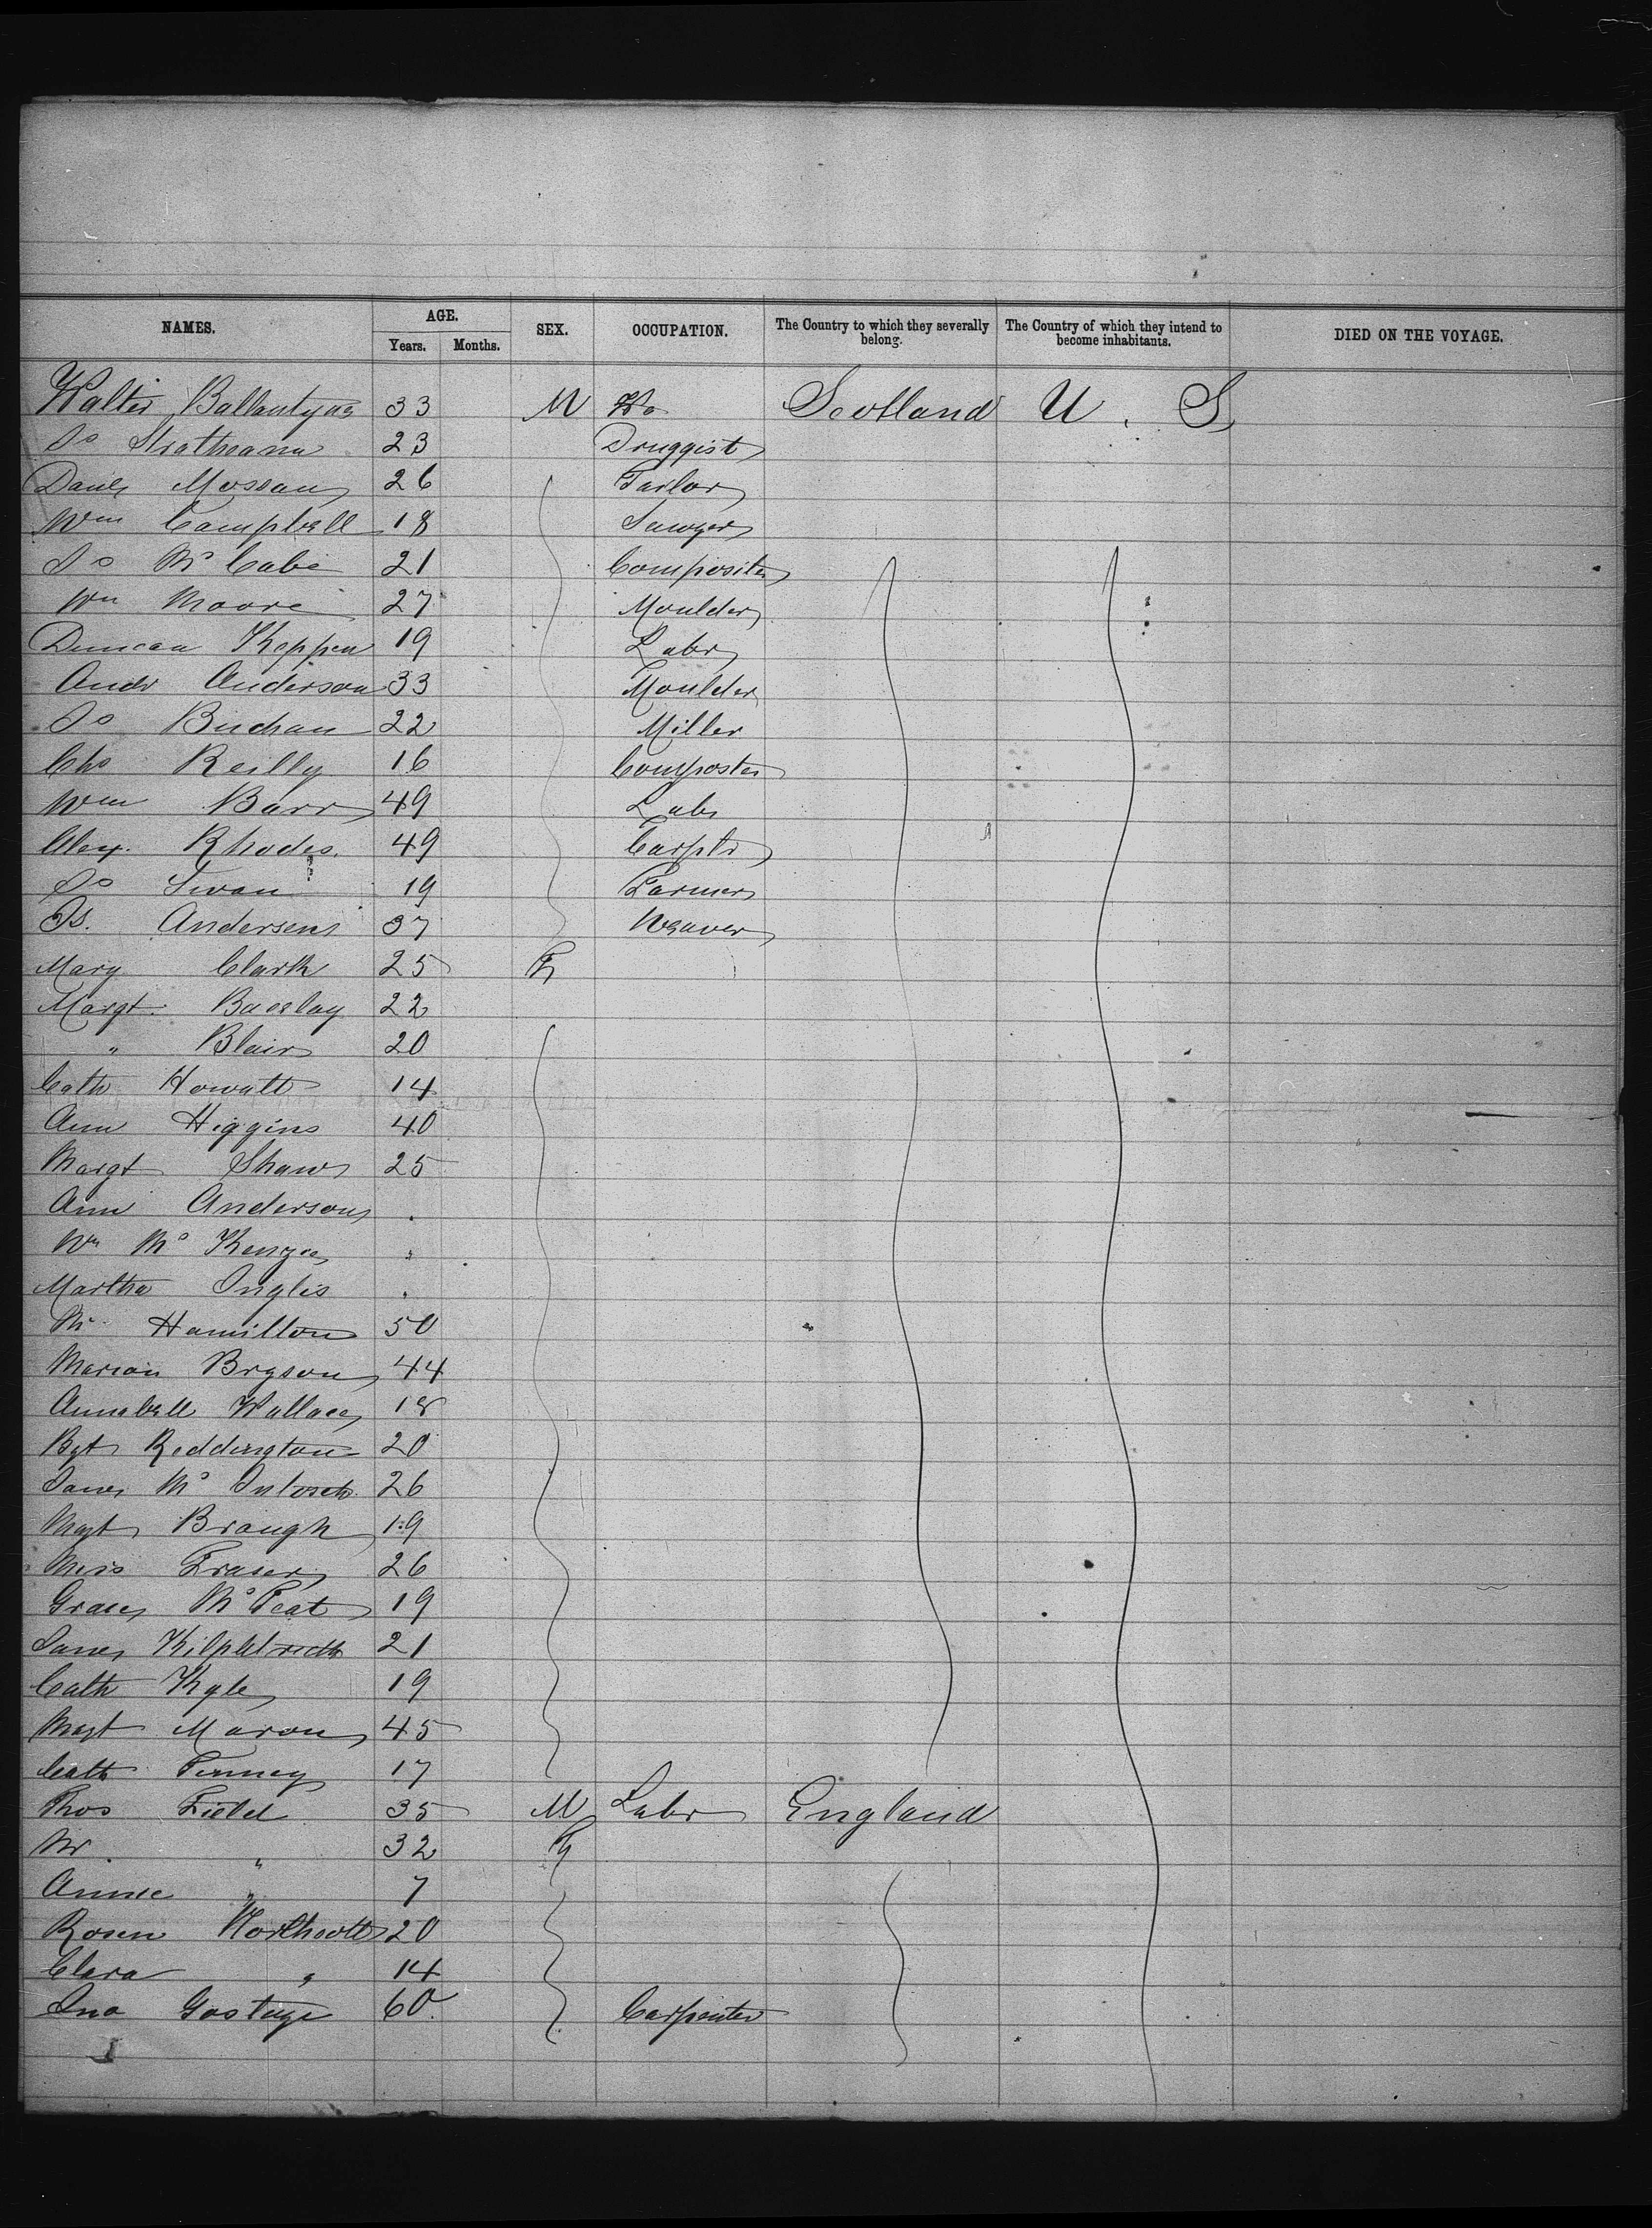 NAMES. AGE. SEX. OCCUPATION. The Country to which they severally belong. The Country of which they intend to become inhabitants. DIED ON THE VOYAGE.
Years. Months.
Walter Ballantyne 33 M Scotland U. S.
Jo 23 Druggist
26 Tailor
Wm Campbell 18 Sawyer
Jo Mc Cabe 21 Composite
Wm Moore 27 Moulder
Duncan Keppen 19 Labr
Andr Anderson 33 Moulder
Jo Buchan 22 Miller
Chs Reilly 16 Composter
Wm Barr 49 Labr
Alex. Rhodes. 49 Carptr
Jo Swan 19 Farmer
Js. Anderson 37 Weaver
Mary Clark 25 F
Margt. 22
" Blair 20
Cath Howatt 14
Ann Higgins 40
Margt Shaw 25
Ann Anderson "
Wm Mc Kenzie "
Martha Inglis "
Mr. Hamilton 50
Marion Bryson 44
Annabell Wallace 18
Bgt Reddington 20
Jane Mc Intosch 26
Magt Brough 19
Miss Fraser 26
Grace Mc Peat 19
Jane 21
Cath Kyle 19
Magt Maron 45
Cath 17
Thos Field 35 M Labr England
Mr. " 32 F
Annie " 7
Rosen Northcott 20
Clara " 14
Jno Gostage 60. Carpenter